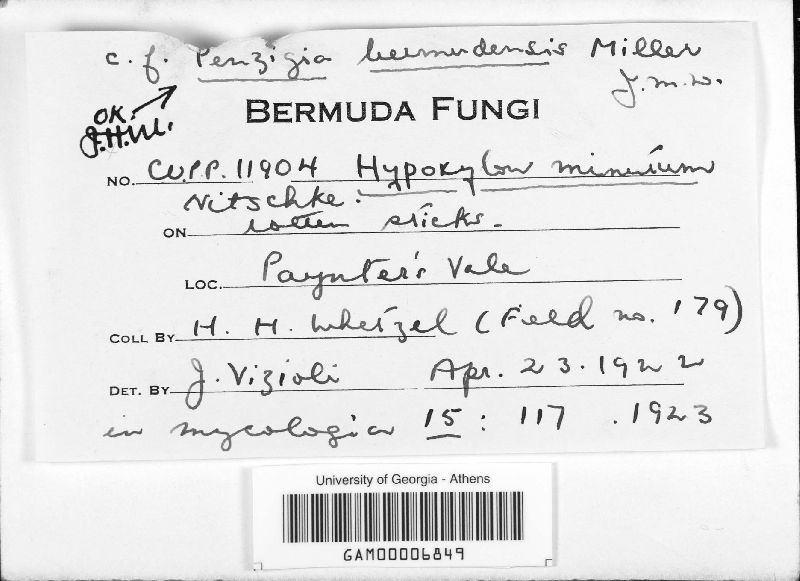 c.f. Penzigia bermudensis Miller
J.M.W.
OK.
J.H.M.
BERMUDA FUNGI
NO. CU.P.P. 11904 Hypoxylon minutum
Nitschke.
ON rotten sticks.
LOC. Paynter's Vale
COLL BY H. H. Whetzel (Field no. 179)
DET. BY J. Vizioli Apr. 23. 1922
in mycologia 15: 117 . 1923
University of Georgia - Athens
GAM00006849